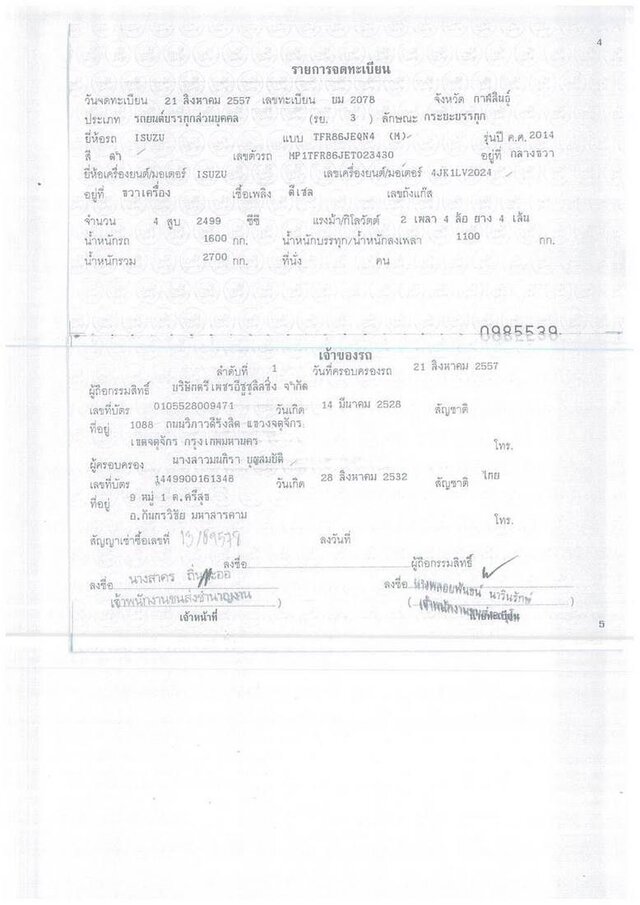 4
รายการจดทะเบียน
วันจดทะเบียน 21 สิงหาคม 2557 เลขทะเบียน ยม 2078 จังหวัด กาฬสินธุ์
ประเภท รถยนต์บรรทุกส่วนบุคคล (รย. 3 ) ลักษณะ กระบะบรรทุก
ยี่ห้อรถ ISUZU แบบ TFR86JEQN4 (M) รุ่นปี ค.ศ. 2014
สี ดำ เลขตัวรถ MP1TFR86JET023430 อยู่ที่ กลางขวา
ยี่ห้อเครื่องยนต์/มอเตอร์ ISUZU เลขเครื่องยนต์/มอเตอร์ 4JK1LV2024
อยู่ที่ ขวาเครื่อง เชื้อเพลิง ดีเซล เลขถังแก๊ส
จำนวน 4 สูบ 2499 ซีซี แรงม้า/กิโลวัตต์ 2 เพลา 4 ล้อ ยาง 4 เส้น
น้ำหนักรถ 1600 กก. น้ำหนักบรรทุก/น้ำหนักลงเพลา 1100 กก.
น้ำหนักรวม 2700 กก. ที่นั่ง คน
0985539
เจ้าของรถ
ลำดับที่ 1 วันที่ครอบครองรถ 21 สิงหาคม 2557
ผู้ถือกรรมสิทธิ์ บริษัทตรีเพชรอีซูซุลิสซิ่ง จำกัด
เลขที่บัตร 0105528009471 วันเกิด 14 มีนาคม 2528 สัญชาติ
ที่อยู่ 1088 ถนนวิภาวดีรังสิต แขวงจตุจักร
เขตจตุจักร กรุงเทพมหานคร โทร.
ผู้ครอบครอง นางสาวมนทิรา บุญสมบัติ
เลขที่บัตร 1449900161348 วันเกิด 28 สิงหาคม 2532 สัญชาติ ไทย
ที่อยู่ 9 หมู่ 1 ต.ศรีสุข
อ.กันทรวิชัย มหาสารคาม โทร.
สัญญาเช่าซื้อเลขที่ ลงวันที่
ลงชื่อ ผู้ถือกรรมสิทธิ์
ลงชื่อ นางสาคร ลงชื่อ นางพลอยพันธน์ นารินรักษ์
เจ้าพนักงานขนส่งชำนาญงาน ) ( เจ้าพนักงานขนส่ง
เจ้าหน้าที่ นายทะเบียน
5